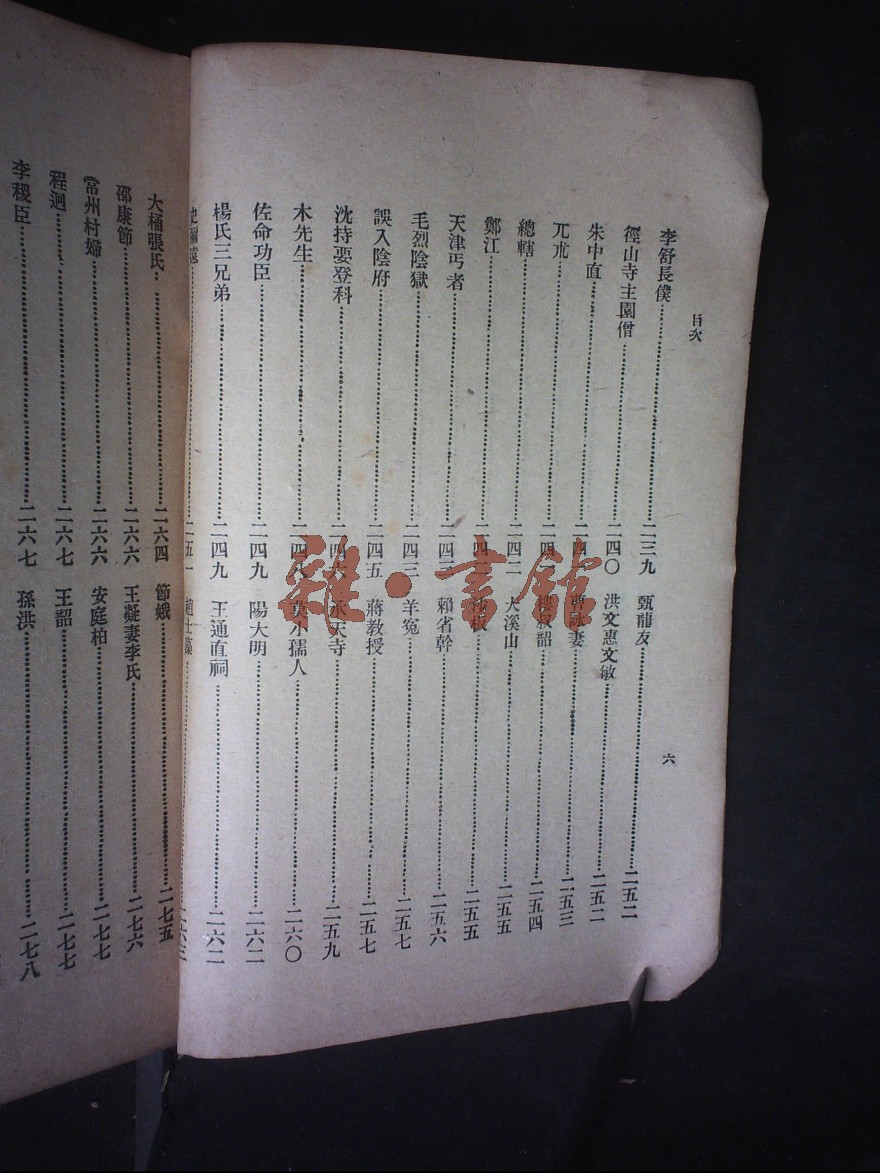 目次
六
李舒長僕……二三九 甄龍友……二五二
徑山寺主園僧……二四〇 洪文惠文敏……二五二
朱中直……二四 曹詠妻……二五三
兀朮……二四 樓叔韶……二五四
總轄……二四二 大溪山……二五五
鄭江……二四 板……二五五
天津丐者……二四三 賴省幹……二五六
毛烈陰獄……二四三 羊寃……二五七
誤入陰府……二四五 蔣教授……二五七
沈持要登科……二四六 承天寺……二五九
木先生……二四八 莫小孺人……二六〇
佐命功臣……二四九 陽大明……二六二
楊氏三兄弟……二四九 王通直祠……二六二
史彌遠……二五一 趙士藻……二六三
大桶張氏……二六四 節娥……二七五
邵康節……二六六 王凝妻李氏……二七六
常州村婦……二六六 安庭柏……二七七
程迥……二六七 王韶……二七七
李稷臣……二六七 孫洪……二七八
雜·書館